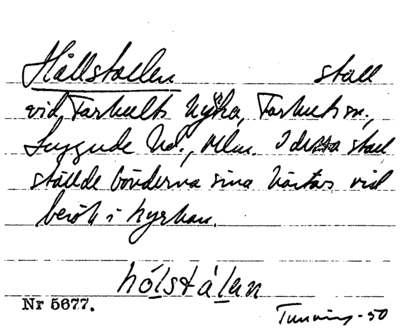 Hållstallen stall
vid Farhults kyrka, Farhult sn.,
Luggude hd., Mlm. I dessa stall
ställde bönderna sina hästar vid
besök i kyrkan.
hólstálan
Nr 5677. Tunving -50